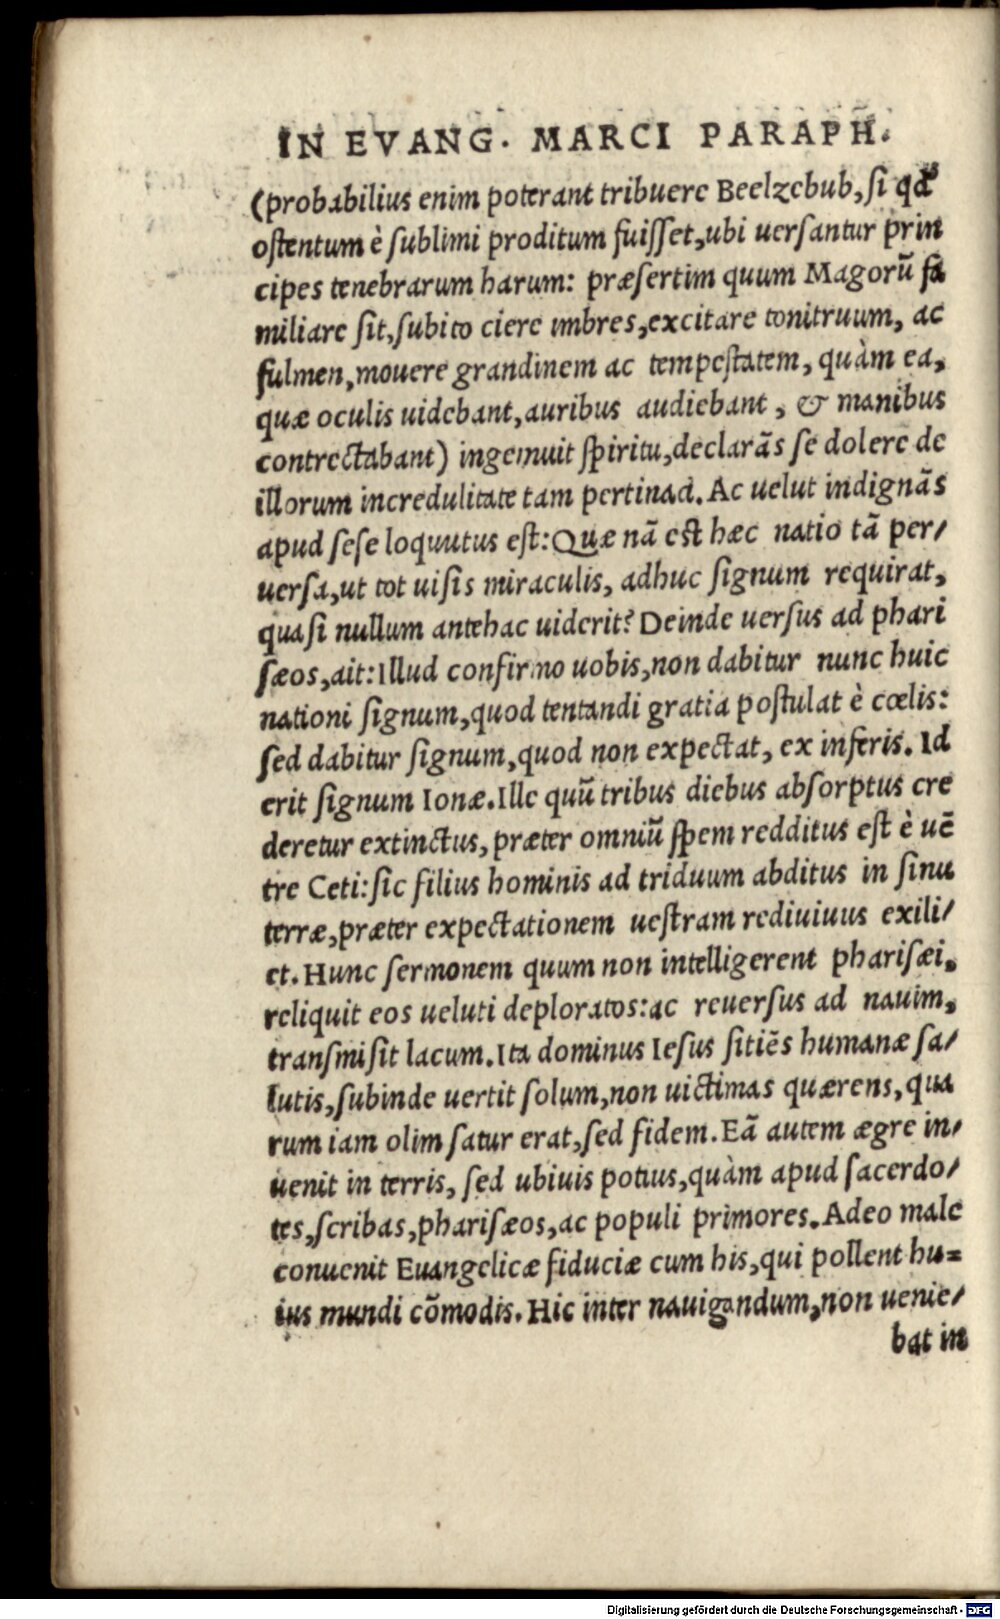 IN EVANG. MARCI PARAPH.
(probabilius enim poterant tribuere Beelzebub, si qd'
ostentum è sublimi proditum fuisset, ubi uersantur prin
cipes tenebrarum harum: præsertim quum Magorũ fa
miliare sit, subito ciere imbres, excitare tonitruum, ac
fulmen, mouere grandinem ac tempestatem, quàm ea,
quæ oculis uidebant, auribus audiebant, & manibus
contrectabant) ingemuit spiritu, declarãs se dolere de
illorum incredulitate tam pertinaci. Ac uelut indignãs
apud sese loquutus est: Quæ nã est hæc natio tã per/
uersa, ut tot uisis miraculis, adhuc signum requirat,
quasi nullum antehac uiderit? Deinde uersus ad phari
sæos, ait: Illud confirmo uobis, non dabitur nunc huic
nationi signum, quod tentandi gratia postulat è cœlis:
sed dabitur signum, quod non expectat, ex inferis. Id
erit signum Ionæ. Ille quũ tribus diebus absorptus cre
deretur extinctus, præter omniũ spem redditus est è uẽ
tre Ceti: sic filius hominis ad triduum abditus in sinu
terræ, præter expectationem uestram rediuiuus exili/
et. Hunc sermonem quum non intelligerent pharisæi,
reliquit eos ueluti deploratos: ac reuersus ad nauim,
transmisit lacum. Ita dominus Iesus sitiẽs humanæ sa/
lutis, subinde uertit solum, non uictimas quærens, qua
rum iam olim satur erat, sed fidem. Eã autem ægre in/
uenit in terris, sed ubiuis potius, quàm apud sacerdo/
tes, scribas, pharisæos, ac populi primores. Adeo male
conuenit Euangelicæ fiduciæ cum his, qui pollent hu=
ius mundi cõmodis. Hic inter nauigandum, non uenie/
bat in
Digitalisierung gefördert durch die Deutsche Forschungsgemeinschaft - DFG